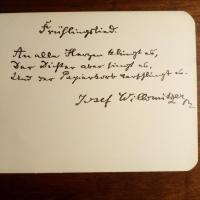 Frühlingslied.
An allen Herzen klingt es,
Der Dichter aber singt es,
Und der Papierkorb verschlingt es.
Josef Willomitzer